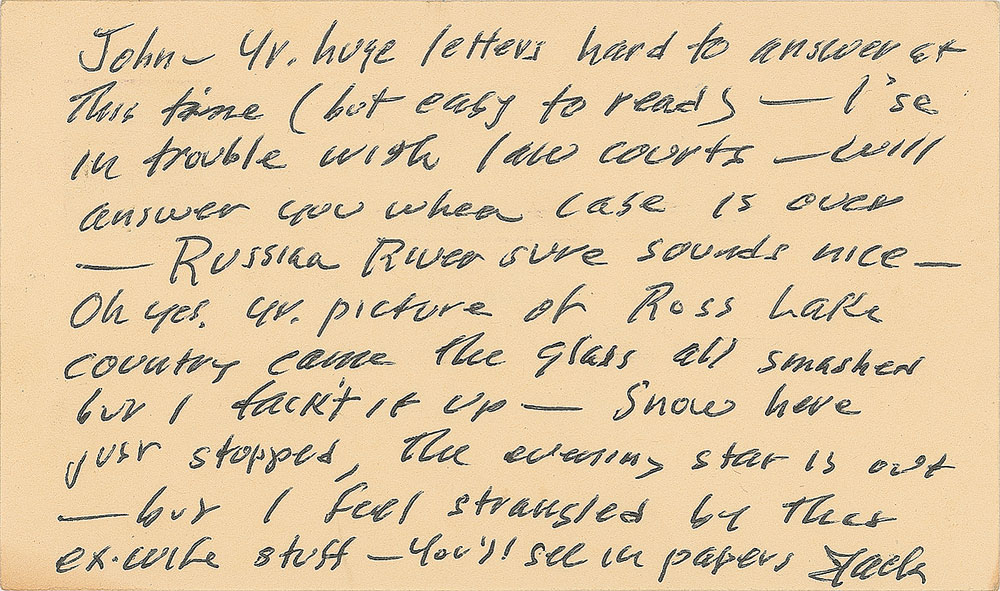 John— Yr. huge letters hard to answer at
this time (but easy to read) — I'se
in trouble with law courts — will
answer you when case is over
— Russian River sure sounds nice —
Oh yes, yr. picture of Ross Lake
country came the glass all smashed
but I tack't it up — Snow here
just stopped, the evening star is out
— but I feel strangled by this
ex-wife stuff — You'll see in papers Jack